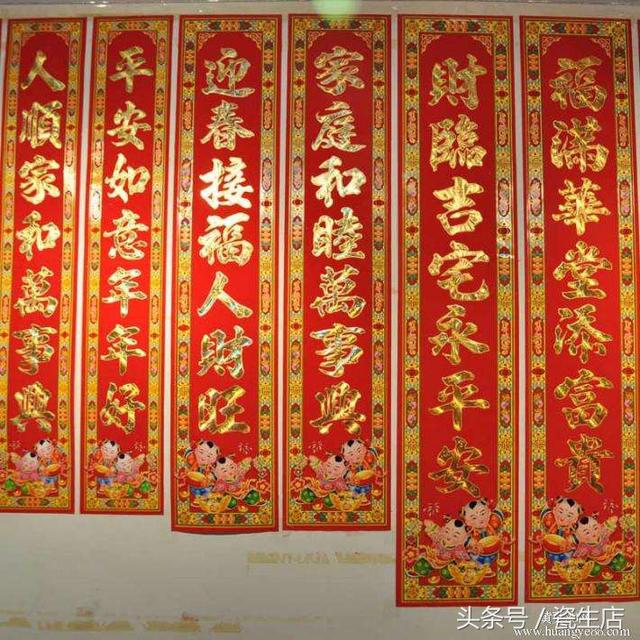 人順家和萬事興
平安如意年年好
迎春接福人財旺
家庭和睦萬事興
財臨吉宅永平安
福滿華堂添富貴
头条号/瓷生店
www.huangye88.com